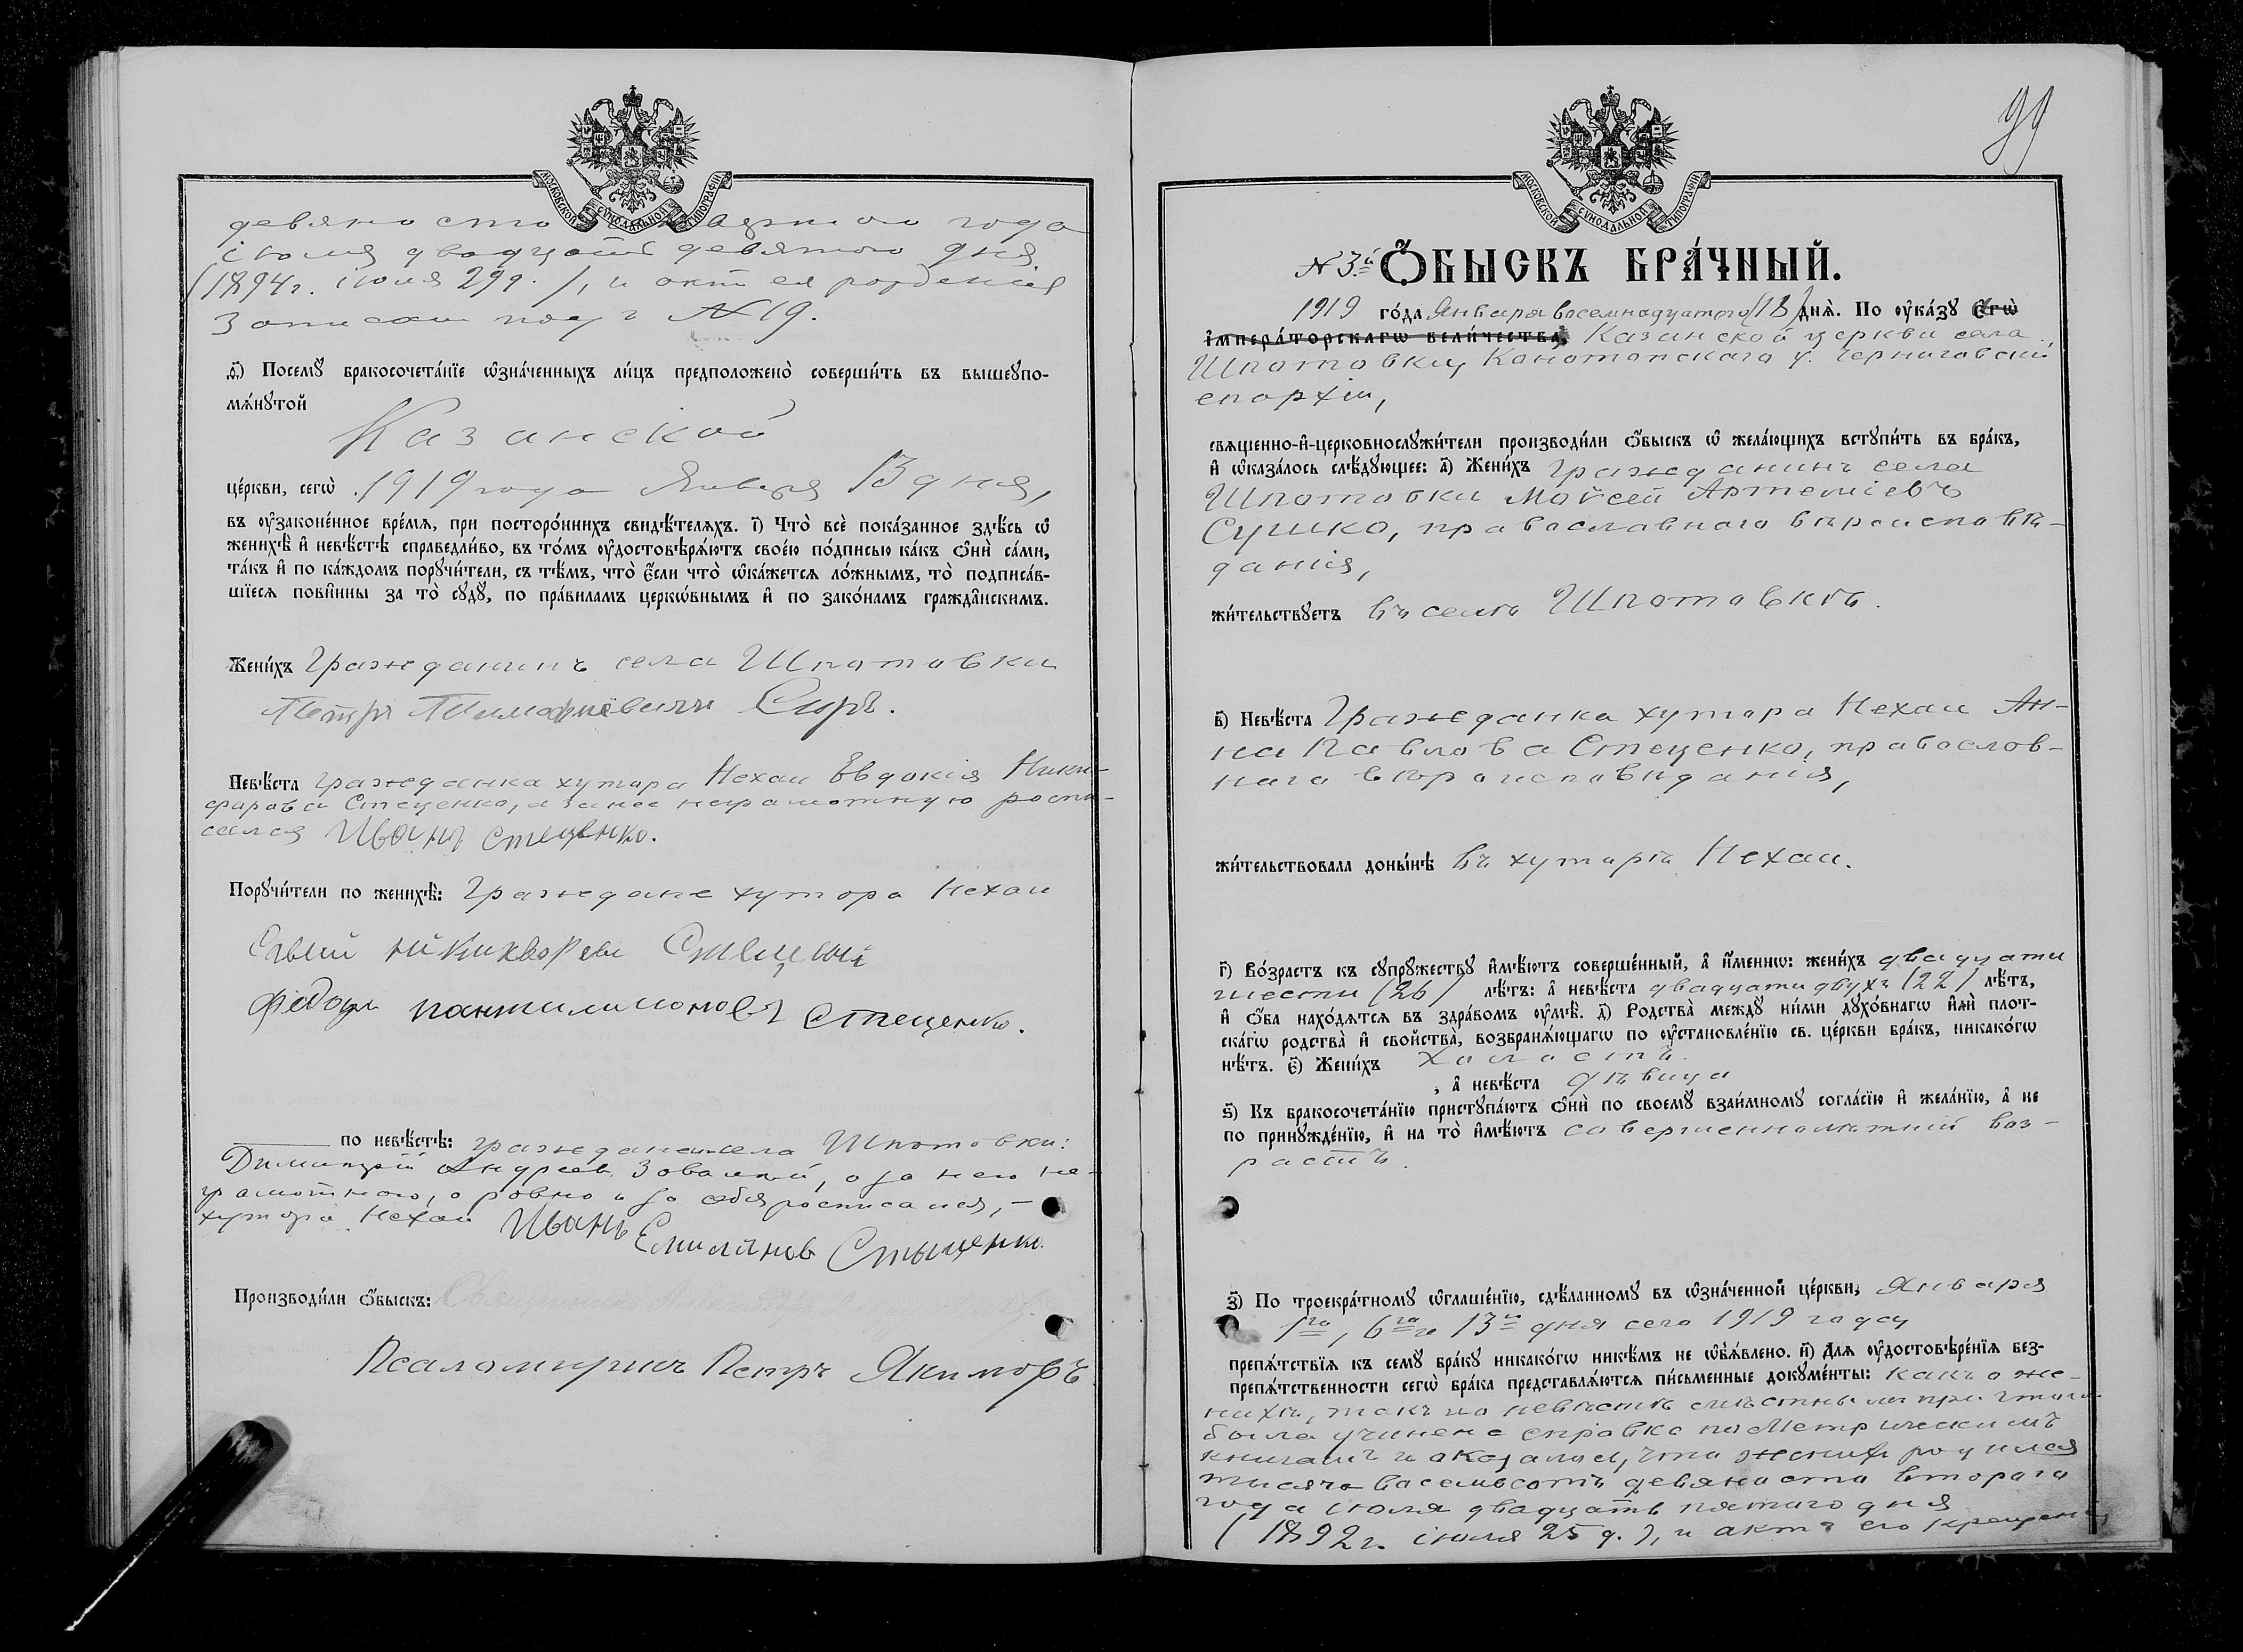 МОСКОВСКОЙ СѴНОДАЛЬНОЙ ТИПОГРАФІИ
девяносто четвертого года
іюля двадцать девятого дня
(1894 г. іюля 29 д.), и актъ ея рожденія
записан подъ № 19.
ѳ҃) Посемꙋ бракосочета́нїе ѡ҆зна́ченныхъ ли́цъ предположено̀ соверши́ть въ вышеꙋпо-
мѧ́нꙋтой
Казанской
це́ркви, сегѡ̀ 1919 года Января 13 дня,
въ ᲂу҆законе́нное вре́мѧ, при посторо́ннихъ свидѣ́телѧхъ. і҃) Что̀ всѐ пока́занное здѣ́сь ѡ҆
женихѣ̀ и҆ невѣ́стѣ справедли́во, въ то́мъ ᲂу҆достовѣрѧ́ютъ свое́ю по́дписью ка́къ ѻ҆нѝ са́ми,
та́къ и҆ по ка́ждомъ порꙋчи́тели, съ тѣ́мъ, что̀ є҆́сли что̀ ѡ҆ка́жетсѧ ло́жнымъ, то̀ подписа́в-
шїесѧ пови́нны за то̀ сꙋдꙋ̀, по пра́виламъ церко́внымъ и҆ по зако́намъ гражда́нскимъ.
Жени́хъ Гражданинъ села Шпотовки
Петръ Тимофиевичъ Сыръ.
Невѣ́ста гражданка хутора Нехаи Евдокія Ники-
форова Стеценко, а за нее неграмотную роспи-
сался Иванъ Стеценко.
Порꙋчи́тели по женихѣ̀: Граждане хутора Нехаи
Федоръ Пантилимоновъ Стеценко.
по невѣ́стѣ: граждане села Шпотовки:
Димитрій Андреев Зовалий, а за него не-
грамотного, а ровно и за себя росписался, —
хутора Нехаи Иванъ Емиліановъ Стыценко.
Производи́ли ѻ҆́быскъ:
Псаломщикъ Петръ Якимовъ
99
МОСКОВСКОЙ СѴНОДАЛЬНОЙ ТИПОГРАФІИ
№ 3й Ѻ҆́БЫСКЪ БРА́ЧНЫЙ.
1919 го́да Января восемнадцатого (18) днѧ̀. По ᲂу҆ка́зꙋ Є҆гѡ̀
І҆мпера́торскагѡ вели́чества, Казанской церкви села
Шпотовки, Конотопскаго у. Черниговской
епархіи,
свѧще́нно-и҆-церковнослꙋжи́тели производи́ли ѻ҆́быскъ ѡ҆ жела́ющихъ встꙋпи́ть въ бра́къ,
и҆ ѡ҆каза́лось слѣ́дꙋющее: а҃) Жени́хъ гражданинъ села
Шпотовки Моѵсей Артеміевъ
Сушко, православнаго вѣроисповѣ-
данія,
жи́тельствꙋетъ въ селѣ Шпотовкѣ.
в҃) Невѣ́ста Гражданка хутора Нехаи Ан-
на Павлова Стеценко, православ-
наго вѣроисповѣданія,
жи́тельствовала доны́нѣ въ хуторѣ Нехаи.
г҃) Во́зрастъ къ сꙋпрꙋ́жествꙋ и҆мѣ́ютъ соверше́нный, а҆ и҆́меннѡ: жени́хъ двадцати
шести (26) лѣ́тъ: а҆ невѣ́ста двадцати двухъ (22) лѣ́тъ,
и҆ ѻ҆́ба нахо́дѧтсѧ въ здра́вомъ ᲂу҆мѣ̀. д҃) Родства̀ междꙋ̀ ни́ми дꙋхо́внагѡ и҆лѝ плот-
ска́гѡ родства̀ и҆ свойства̀, возбранѧ́ющагѡ по ᲂу҆становле́нїю св. це́ркви бра́къ, никако́гѡ
нѣ́тъ. є҃) Жени́хъ холостъ.
, а҆ невѣ́ста дѣвица
ѕ҃) Къ бракосочета́нїю пристꙋпа́ютъ ѻ҆нѝ по своемꙋ̀ взаи́мномꙋ согла́сїю и҆ жела́нїю, а҆ не
по принꙋжде́нїю, и҆ на то̀ и҆мѣ́ютъ совершеннолѣтній воз-
растъ.
з҃) По троекра́тномꙋ ѡ҆глаше́нїю, сдѣ́ланномꙋ въ ѡ҆зна́ченной це́ркви, Января
1го, 6го и 13го дня сего 1919 года
препѧ́тствїѧ къ семꙋ̀ бра́кꙋ никако́гѡ никѣ́мъ не ѡ҆б̾ѧ́влено. и҃) Длѧ ᲂу҆достовѣре́нїѧ без-
препѧ́тственности сегѡ̀ бра́ка представлѧ́ютсѧ пи́сьменные докꙋме́нты: какъ о же-
нихѣ, такъ и о невѣстѣ мѣстнымъ причтомъ
была учинена справка по Метрическимъ
книгамъ и оказалось, что женихъ родился
тысяча восемьсотъ девяноста втораго
года іюля двадцать пятаго дня
(1892 г. іюля 25 д.), и актъ его крещенія